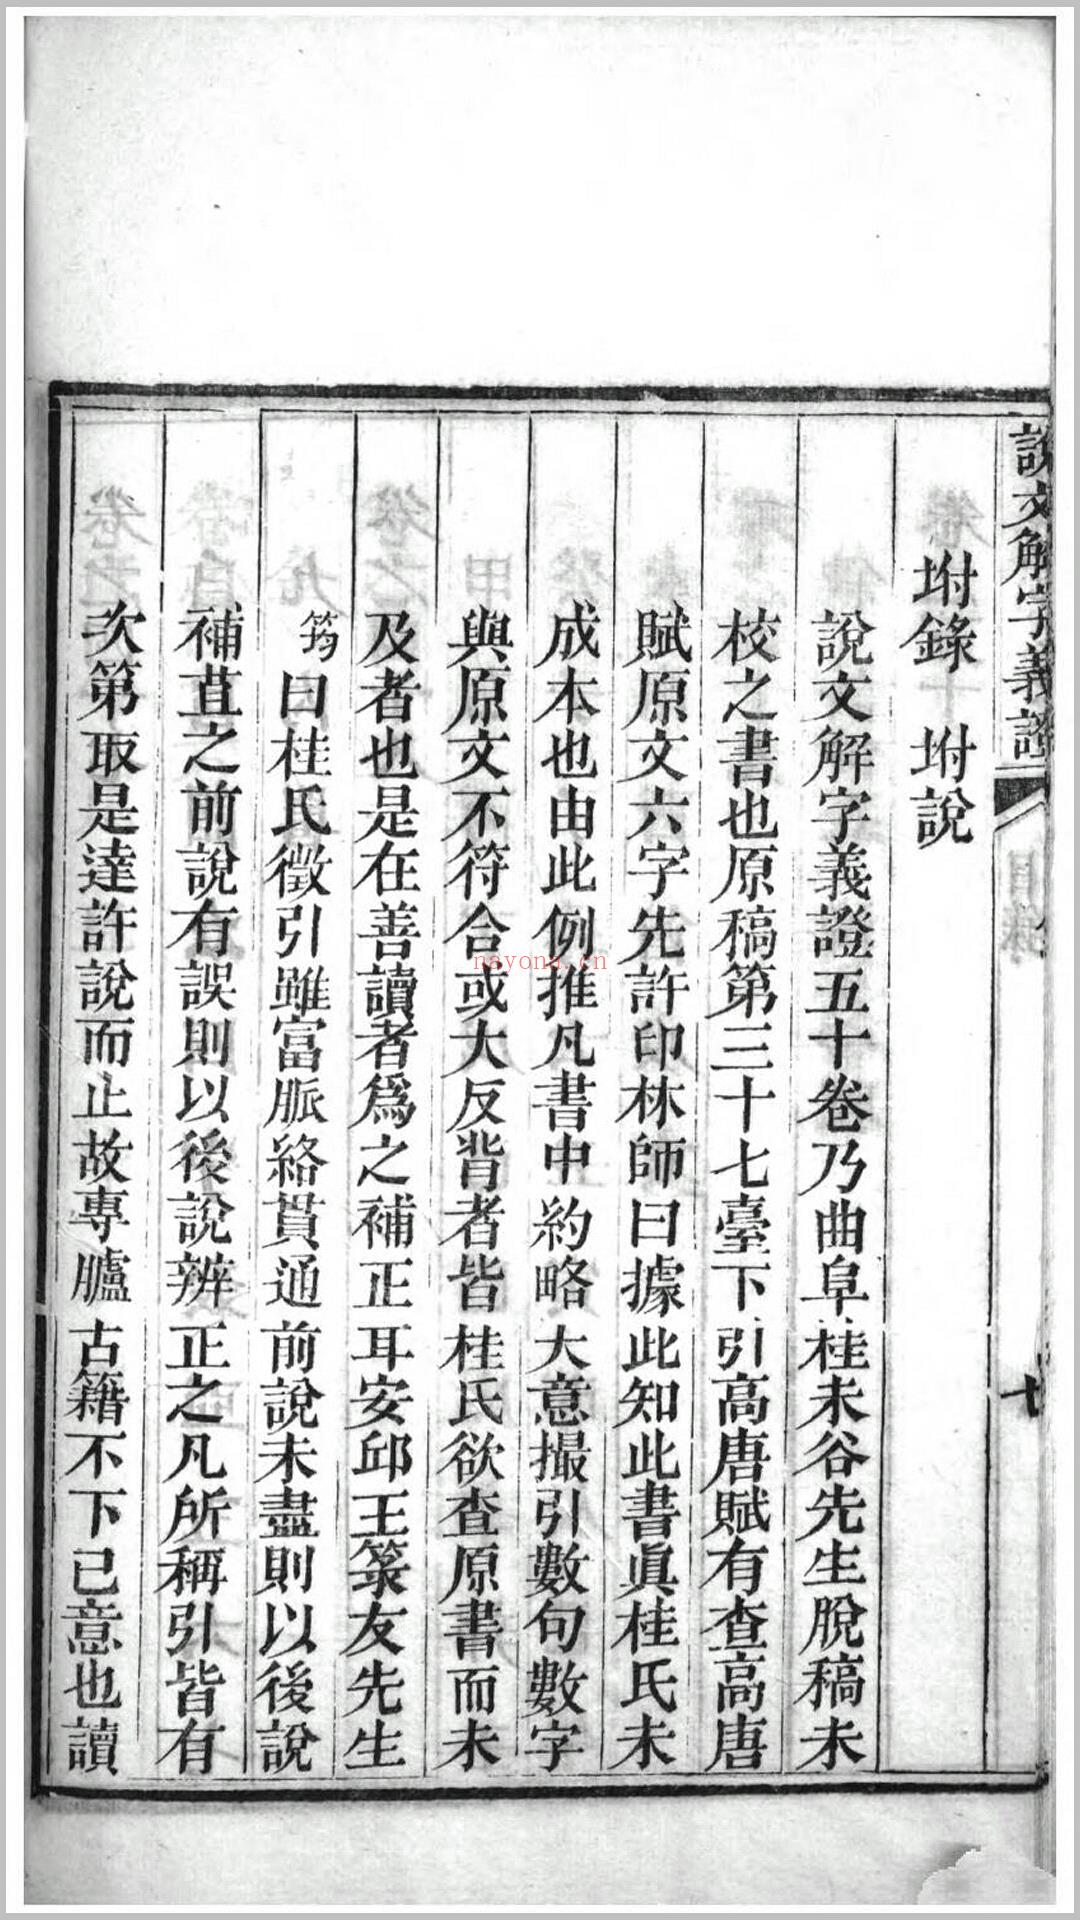 說文解字義證
七
坿錄 坿說
說文解字義證五十卷乃曲阜桂未谷先生脫稿未
校之書也原稿第三十七臺下引高唐賦有查高唐
賦原文六字先許印林師曰據此知此書眞桂氏未
成本也由此例推凡書中約略大意撮引數句數字
與原文不符合或大反背者皆桂氏欲查原書而未
及者也是在善讀者爲之補正耳安邱王箓友先生
筠曰桂氏徵引雖富脈絡貫通前說未盡則以後說
補苴之前說有誤則以後說辨正之凡所稱引皆有
次第取是達許說而止故專臚古籍不下己意也讀
nayona.cn